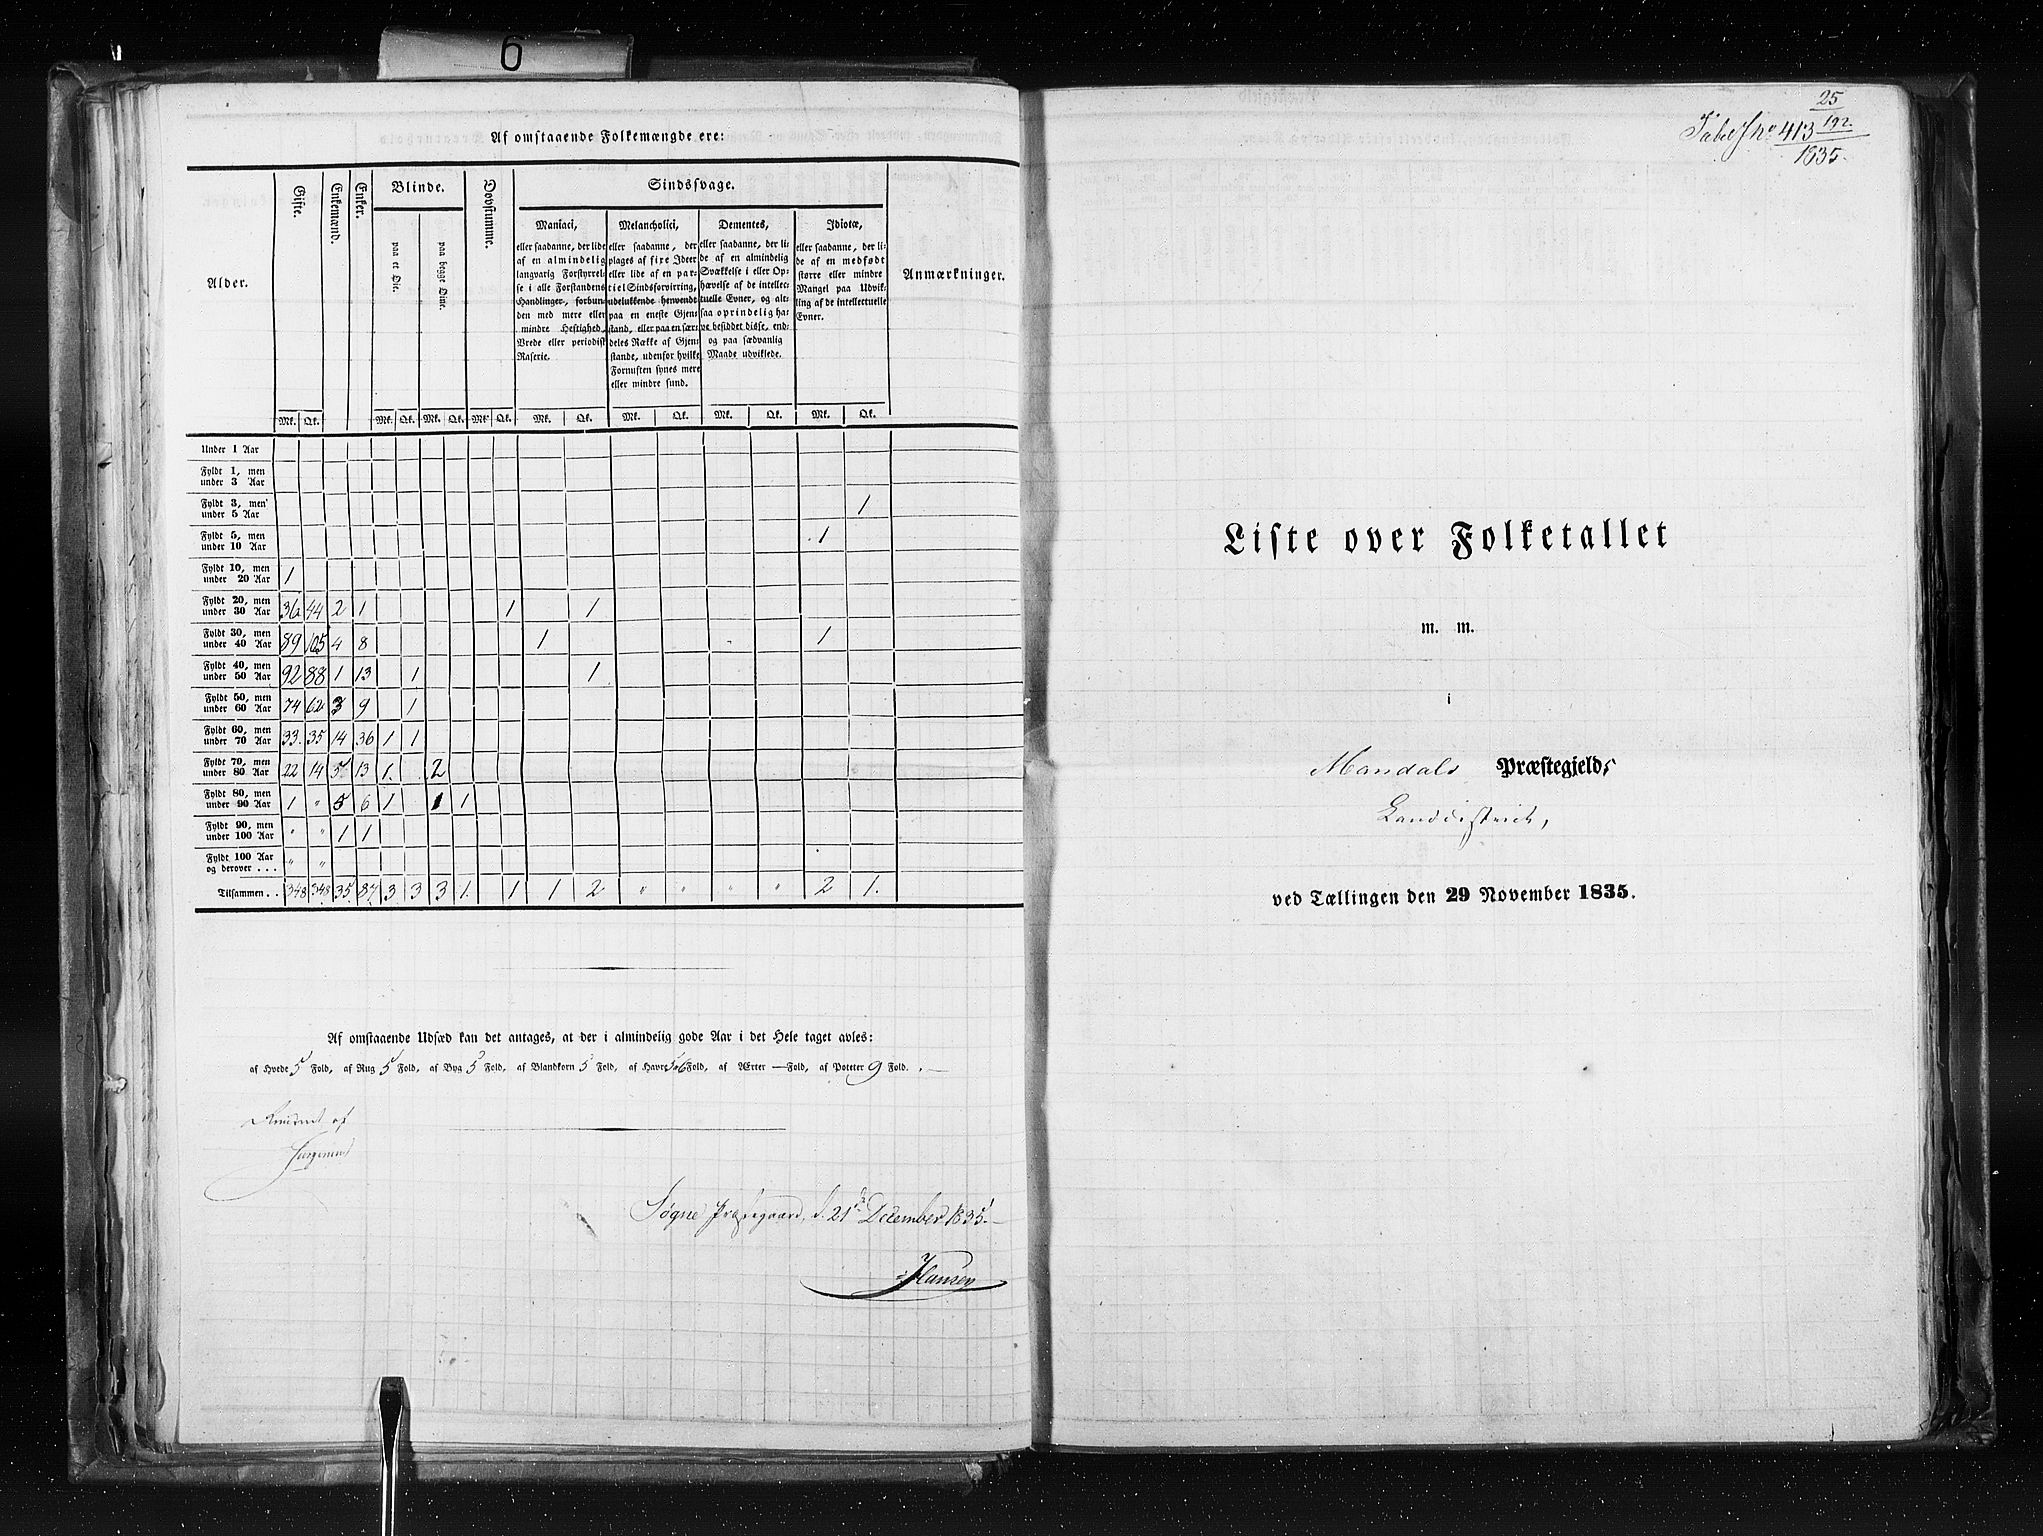 6
Af omstaaende Folkemængde ere:
Alder.
Gifte.
Enkemænd.
Enker.
Blinde.
paa et Øie.
paa begge Øine.
Døvstumme.
Sindssvage.
Maniaci,
eller saadanne, der lide
af en almindelig
langvarig Forstyrrel-
se i alle Forstandens
Handlinger, forbun-
den med mere eller
mindre Heftighed,
Vrede eller periodisk
Raserie.
Melancholici,
eller saadanne, der
plages af fixe Ideer
eller lide af en par-
tiel Sindsforvirring,
udelukkende henvendt
paa en eneste Gjen-
stand, eller paa en sær-
deles Række af Gjen-
stande, udenfor hvilke
Fornuften synes mere
eller mindre sund.
Dementes,
eller saadanne, der li-
de af en almindelig
Svækkelse i eller Op-
hævelse af de intellec-
tuelle Evner, og alt-
saa oprindelig ha-
ve besiddet disse, end-
og paa sædvanlig
Maade udviklede.
Idiotæ,
eller saadanne, der li-
de af en medfødt
større eller mindre
Mangel paa Udvik-
ling af de intellectuelle
Evner.
Anmærkninger.
Mk. Qk. Mk. Qk. Mk. Qk. Mk. Qk. Mk. Qk. Mk. Qk. Mk. Qk. Mk. Qk.
Under 1 Aar
Fyldt 1, men
under 3 Aar
Fyldt 3, men
under 5 Aar 1
Fyldt 5, men
under 10 Aar 1
Fyldt 10, men
under 20 Aar 1
Fyldt 20, men
under 30 Aar 36 44 2 1 1 1
Fyldt 30, men
under 40 Aar 89 105 4 8 1 1
Fyldt 40, men
under 50 Aar 92 88 1 13 1 1
Fyldt 50, men
under 60 Aar 74 62 3 9 1
Fyldt 60, men
under 70 Aar 33. 35 14 36 1 1
Fyldt 70, men
under 80 Aar 22 14 5 13 1. 2
Fyldt 80, men
under 90 Aar 1 " 5 6 1 1 1
Fyldt 90, men
under 100 Aar " " 1 1
Fyldt 100 Aar
og derover . . . " "
Tilsammen . . 348 348 35 87 3 3 3 1. 1 1 2 " " " " 2 1.
Af omstaaende Udsæd kan det antages, at der i almindelig gode Aar i det Hele taget avles:
af Hvede 5 Fold, af Rug 5 Fold, af Byg 5 Fold, af Blandkorn 5 Fold, af Havre 5 a 6 Fold, af Ærter — Fold, af Poteter 9 Fold.
af
Søgne Præstegaard, d. 21de December 1835.
Hansen
25
Tabel No 413 192.
1835.
Liste over Folketallet
m. m.
i
Mandals Præstegjelds
Landdistrict,
ved Tællingen den 29 November 1835.